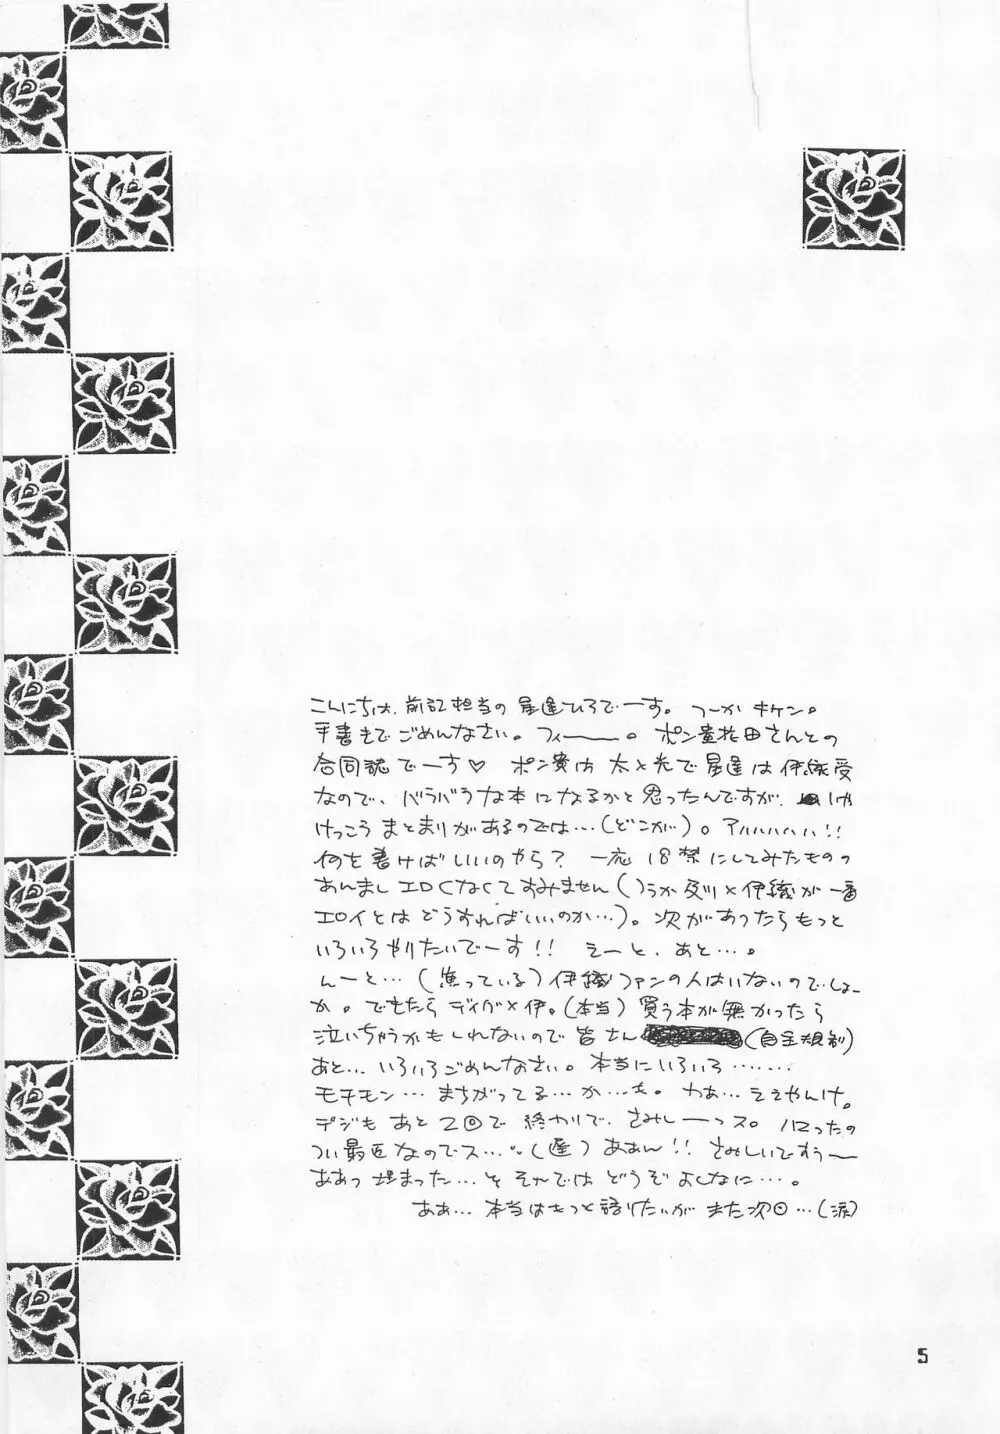 こんにちは、前記担当の星逢ひろでーす。つーかキケン。
手書きでごめんなさい。フィーー。ポン貴花田さんとの
合同誌でーす♡ ポン貴は太と光で星逢は伊織受
なので、バラバラな本になるかと思ったんですが、
けっこうまとまりがあるのでは…(どこが)。アハハハハハ!!
何を書けばいいのやら？一応18禁にしてみたものの
あんましエロくなくてすみません(つうか及川×伊織が一番
エロイとはどうすればいいのか…)。次があったらもっと
いろいろやりたいでーす!! えーと、あと…。
んーと…(焦っている)伊織ファンの人はいないのでしょー
か。でもたらディグ×伊。(本当)買う本が無かったら
泣いちゃうかもしれないので皆さん(自主規制)
あと…いろいろごめんなさい。本当にいろいろ……
モチモン…まちがってる…か…も。わあ…ええやんけ。
デジもあと2回で終わりで、さみしーっス。ハマったの
つい最近なのでス…(遅)ああん!! さみしいですぅー
ああっ埋まった…とそれではどうぞよしなに…。
ああ…本当はもっと語りたいがまた次回…(涙)
5